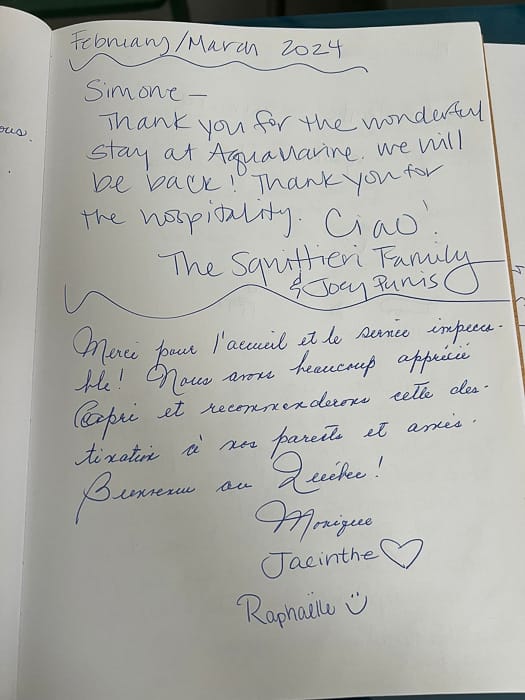 ous.
February/March 2024
Simone –
Thank you for the wonderful
stay at AquaMarine. we will
be back! Thank you for
the hospitality. Ciao!
The Squittieri Family
& Joey Punis
Merci pour l'accueil et le service impecca-
ble! Nous avons beaucoup apprécié
Capri et recommenderons cette des-
tination à nos parents et amis.
Bienvenue au Québec!
Monique
Jacinthe ♡
Raphaëlle ☺